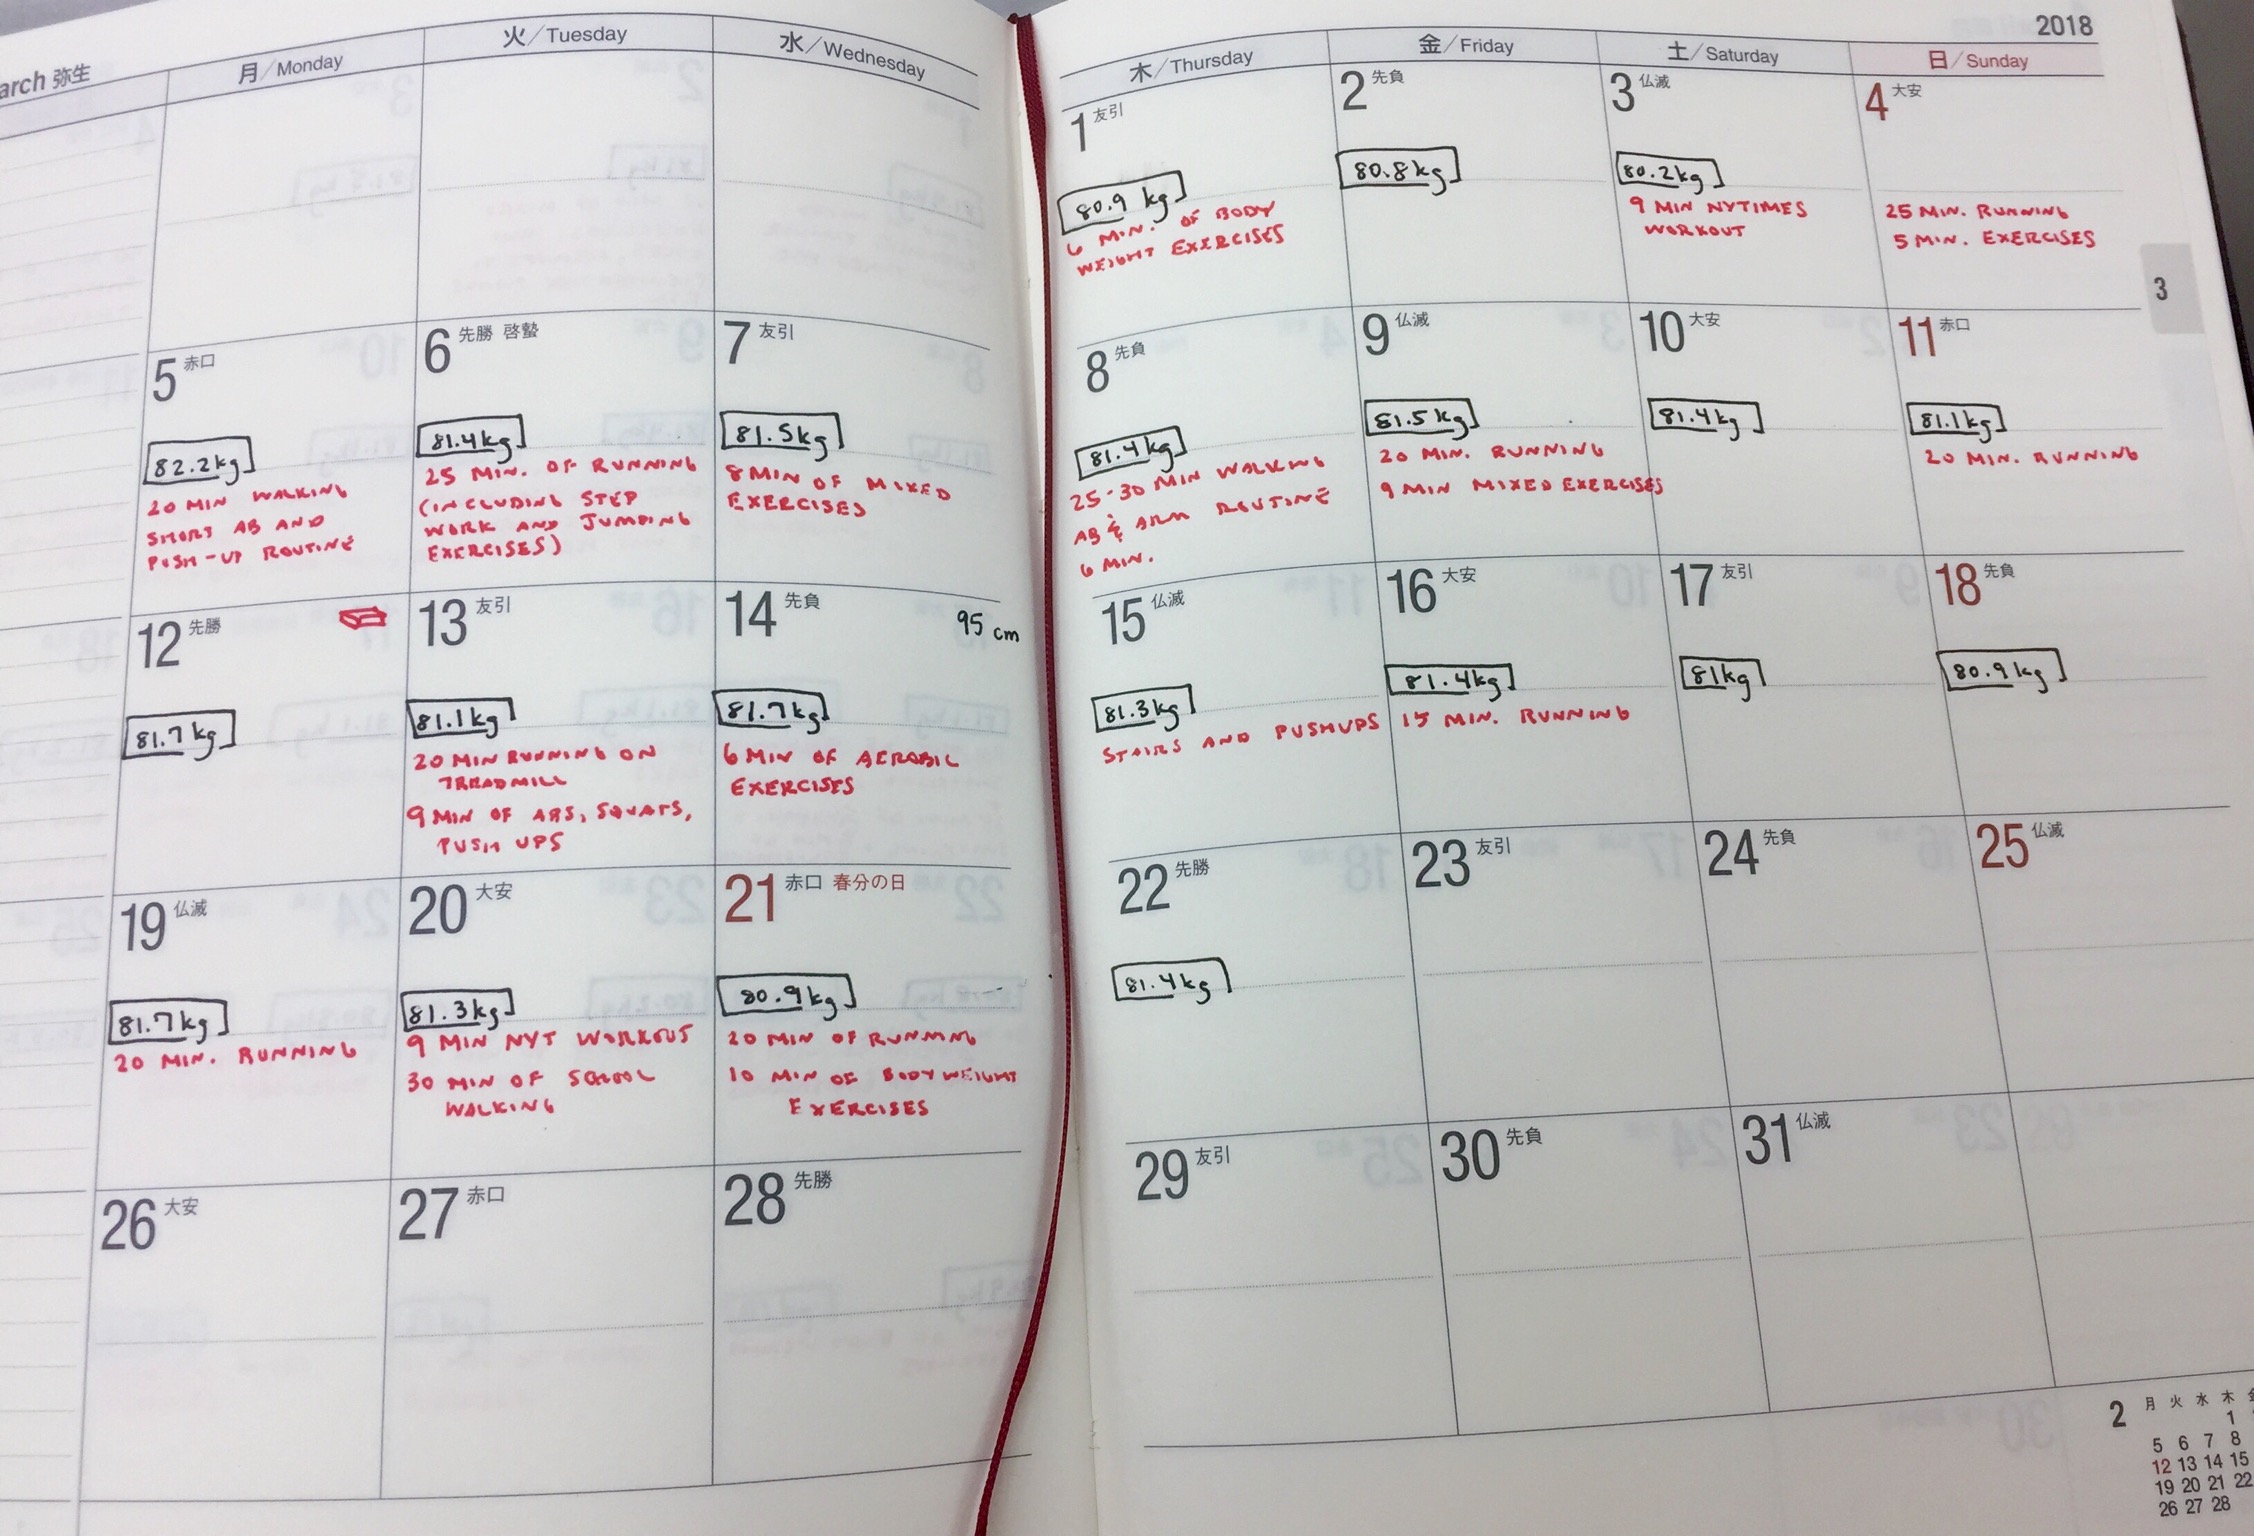 arch 弥生
月/Monday
火/Tuesday
水/Wednesday
木/Thursday
金/Friday
土/Saturday
日/Sunday
2018
1 友引
80.9 kg
6 MIN. OF BODY
WEIGHT EXERCISES
2 先負
80.8kg
3 仏滅
80.2kg
9 MIN NYTIMES
WORKOUT
4 大安
25 MIN. RUNNING
5 MIN. EXERCISES
3
5 赤口
82.2kg
20 MIN WALKING
SHORT AB AND
PUSH-UP ROUTINE
6 先勝 啓蟄
81.4kg
25 MIN. OF RUNNING
(INCLUDING STEP
WORK AND JUMPING
EXERCISES)
7 友引
81.5kg
8 MIN OF MIXED
EXERCISES
8 先負
81.4kg
25-30 MIN WALKING
AB & ARM ROUTINE
6 MIN.
9 仏滅
81.5kg
20 MIN. RUNNING
9 MIN MIXED EXERCISES
10 大安
81.4kg
11 赤口
81.1kg
20 MIN. RUNNING
12 先勝
81.7kg
13 友引
81.1kg
20 MIN RUNNING ON
TREADMILL
9 MIN OF ABS, SQUATS,
PUSH UPS
14 先負
95 cm
81.7kg
6 MIN OF AEROBIC
EXERCISES
15 仏滅
81.3kg
STAIRS AND PUSHUPS
16 大安
81.4kg
15 MIN. RUNNING
17 友引
81kg
18 先負
80.9kg
19 仏滅
81.7kg
20 MIN. RUNNING
20 大安
81.3kg
9 MIN NYT WORKOUT
30 MIN OF SCHOOL
WALKING
21 赤口 春分の日
80.9kg
20 MIN OF RUNNING
10 MIN OF BODYWEIGHT
EXERCISES
22 先勝
81.4kg
23 友引
24 先負
25 仏滅
26 大安
27 赤口
28 先勝
29 友引
30 先負
31 仏滅
2
月 火 水 木 金
1
5 6 7 8
12 13 14 15
19 20 21 22
26 27 28